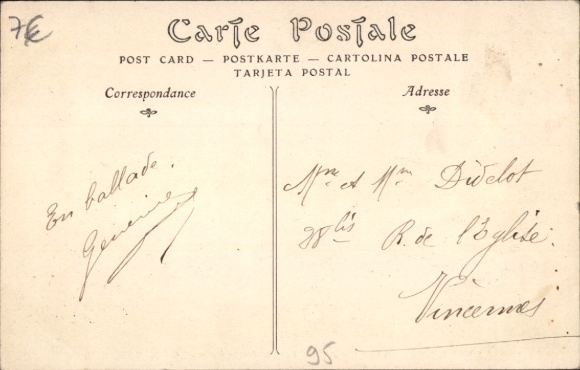 7€
Carte Postale
POST CARD — POSTKARTE — CARTOLINA POSTALE
TARJETA POSTAL
Correspondance
Adresse
En ballade.
Mme et Mm Didelot
28bis R. de l'Eglise.
Vincennes
95